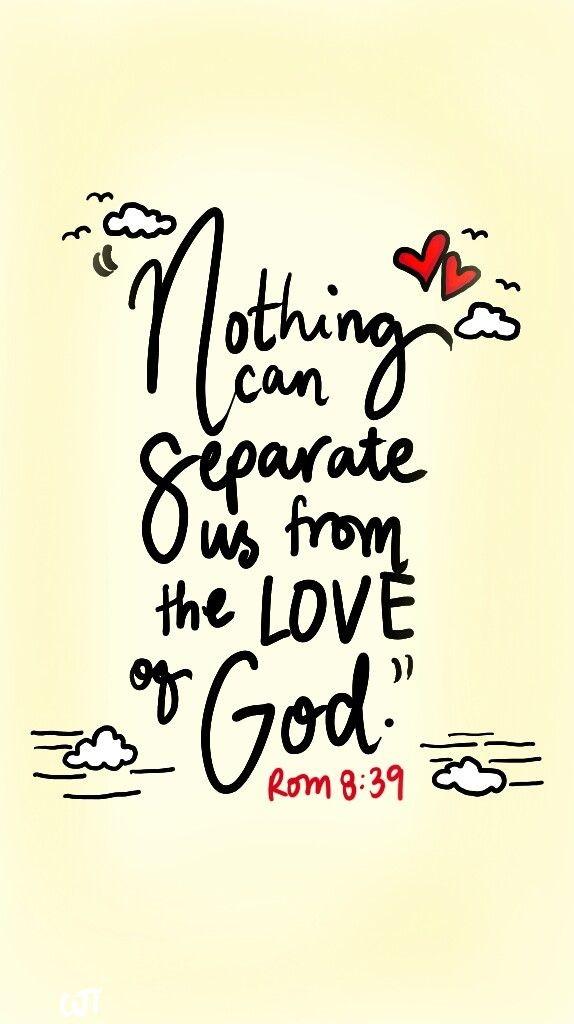 "Nothing
can
separate
us from
the LOVE
of God."
Rom 8:39
WT